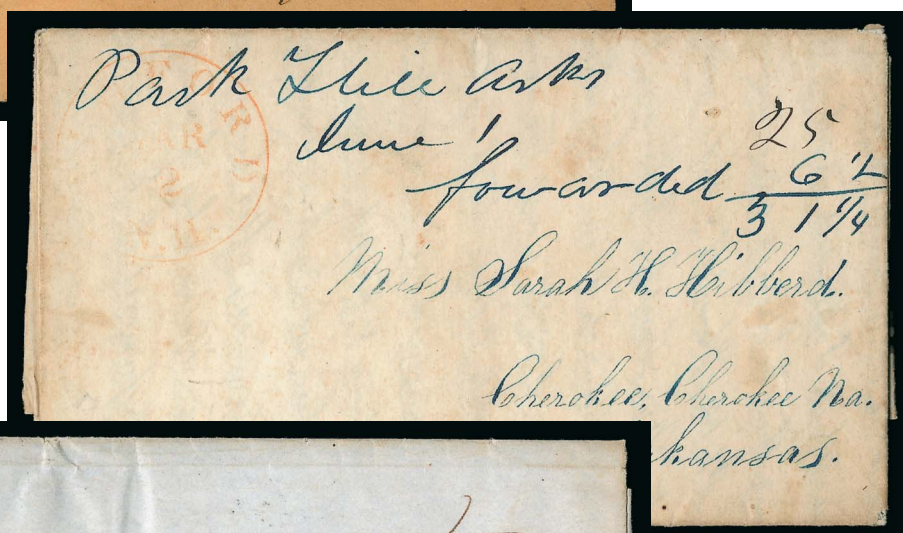 Park Hill Arks
June 1
25
forwarded 6 1/4
31 1/4
MAR
2
N.H.
Miss Sarah H. Hibberd.
Cherokee, Cherokee Na.
kansas.